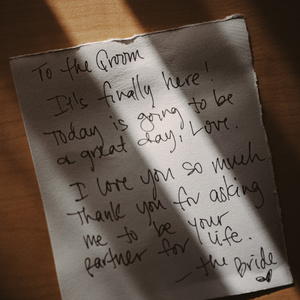 To the Groom
It's finally here!
Today is going to be
a great day, Love.
I love you so much
Thank you for asking
me to be your
partner for life.
– the Bride